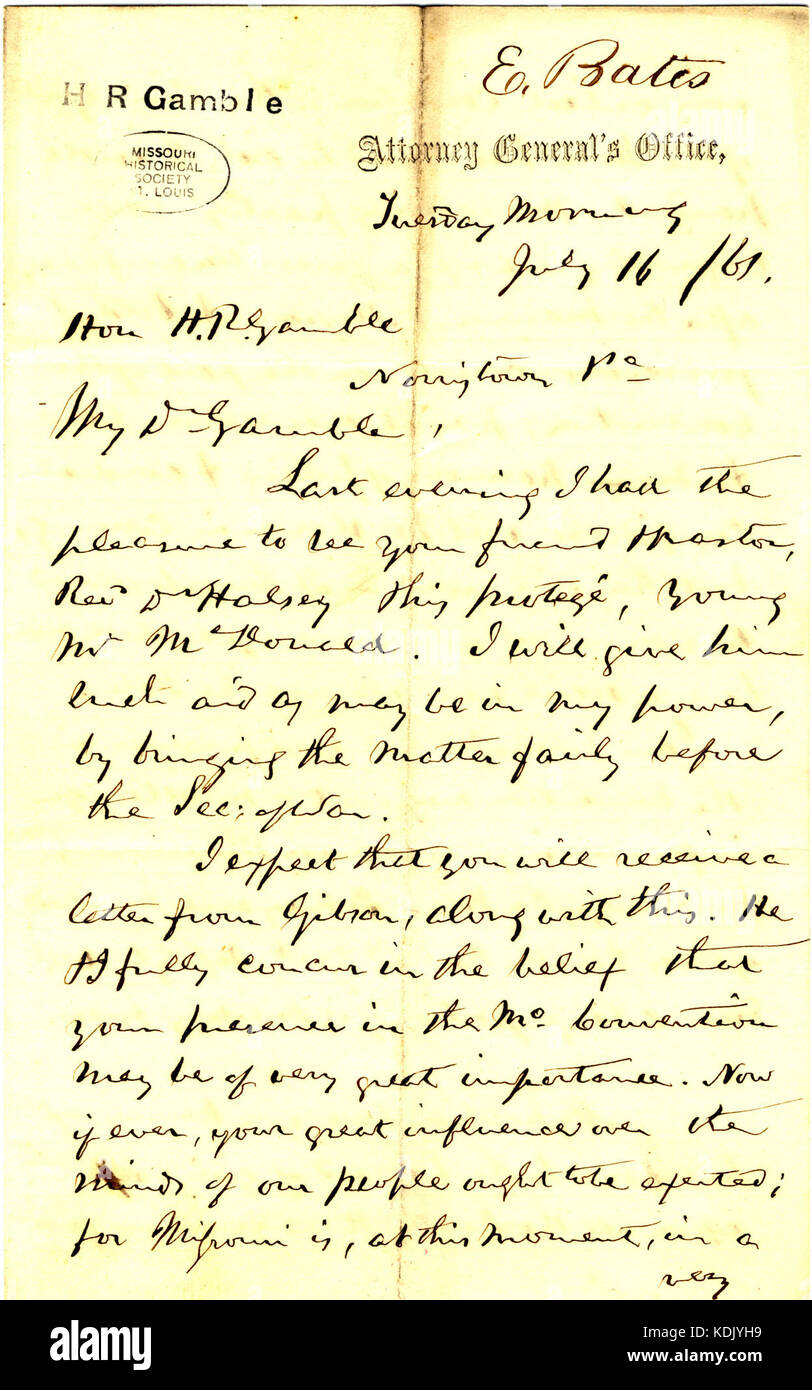 E. Bates
H R Gamble
MISSOURI
HISTORICAL
SOCIETY
T. LOUIS
Attorney General's Office,
Tuesday Morning
July 16 /61.
Hon H. R. Gamble
Norristown Pa
My Dr Gamble,
Last evening I had the
pleasure to see your friend & pastor,
Revd Dr Halsey & his protegé, young
Mr McDonald. I will give him
such aid as may be in my power,
by bringing the matter fairly before
the Sec: of War.
I expect that you will receive a
letter from Gibson, along with this. He
& I fully concur in the belief that
your presence in the Mo. Convention
may be of very great importance. Now
if ever, your great influence over the
minds of our people ought to be exerted;
for Missouri is, at this moment, in a
very
alamy
Image ID: KDJYH9
www.alamy.com